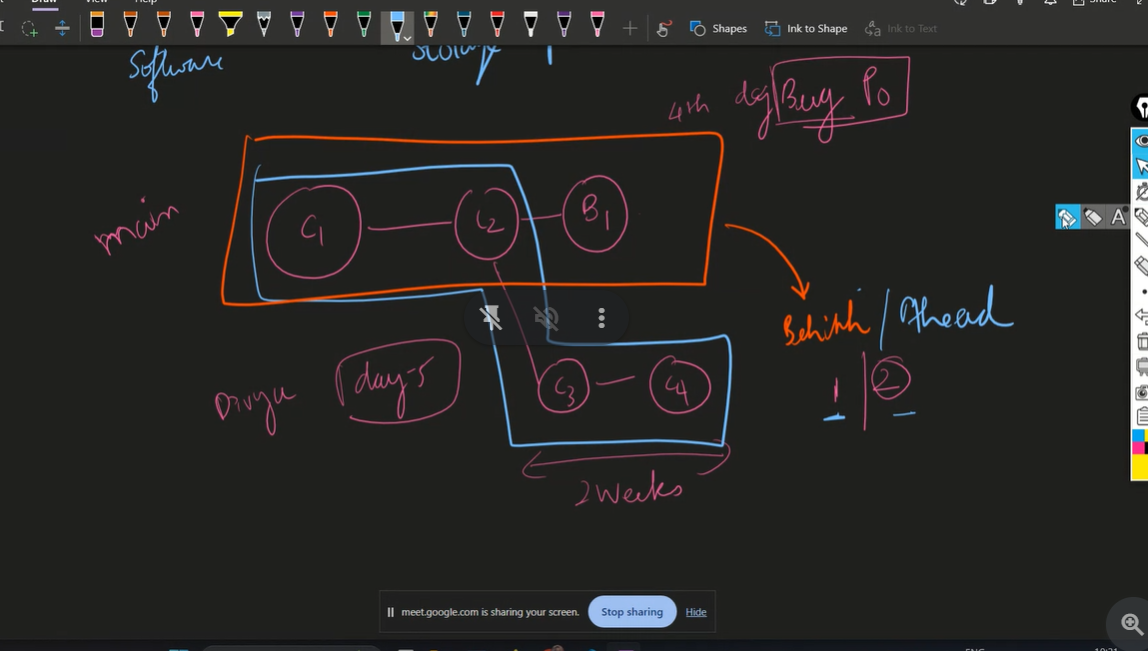 Draw View Help
Share
Shapes
Ink to Shape
Ink to Text
A
Software
Storage
4th day Buy Po
main
C1
C2
B1
Behinh / Ahead
1 | 2
Divya
day-5
C3
C4
2 Weeks
meet.google.com is sharing your screen.
Stop sharing
Hide
ENG